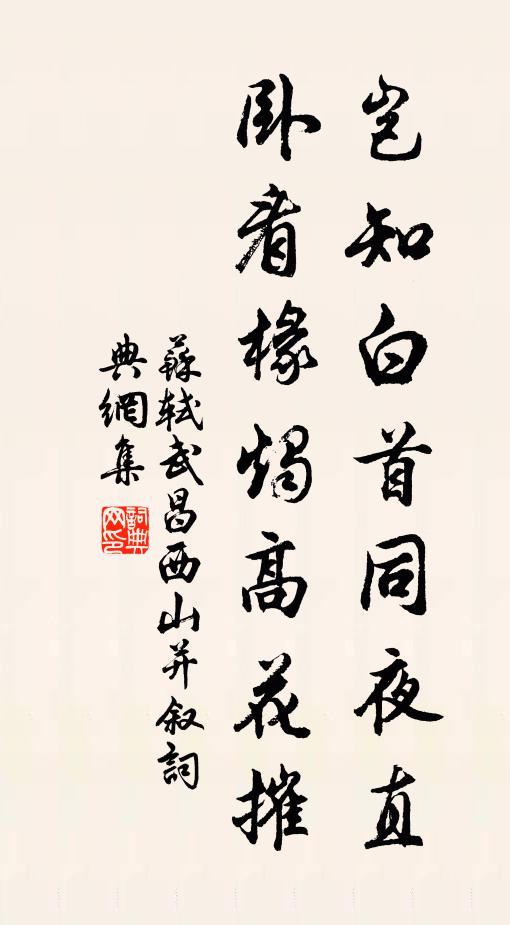 岂知白首同夜直
卧看椽烛高花摧
蘇軾武昌西山并叙詞
典網集
詞典
网印